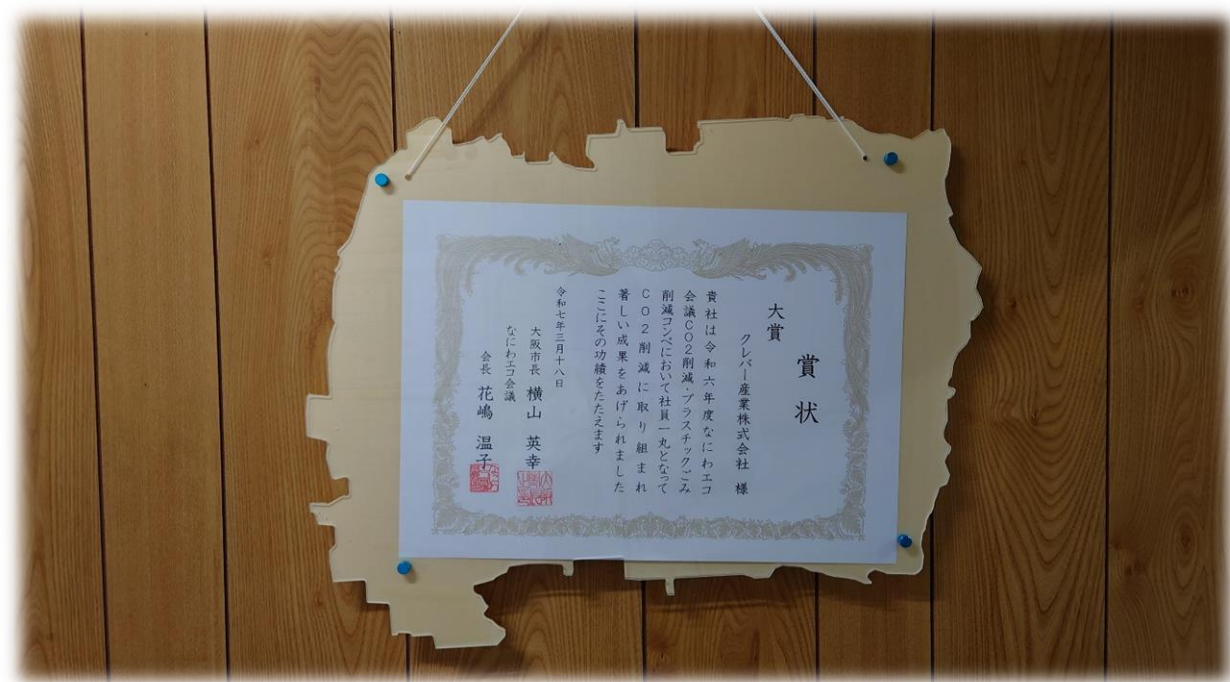 賞状
大賞
クレバー産業株式会社 様
貴社は令和六年度なにわエコ
会議CO2削減・プラスチックごみ
削減コンペにおいて社員一丸となって
CO2削減に取り組まれ
著しい成果をあげられました
ここにその功績をたたえます
令和七年三月十八日
大阪市長 横山 英幸
なにわエコ会議
会長 花嶋 温子